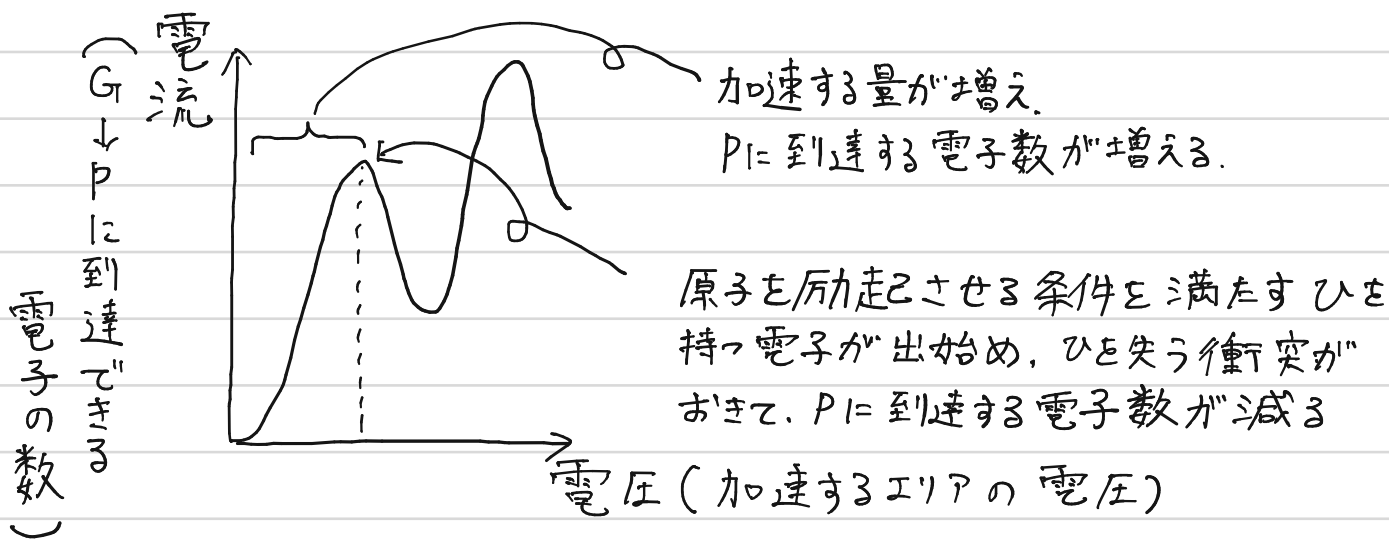 電流
(G→Pに到達できる
電子の数)
加速する量が増え.
Pに到達する電子数が増える.
原子を励起させる条件を満たすひを
持つ電子が出始め.ひを失う衝突が
おきて.Pに到達する電子数が減る
電圧(加速するエリアの電圧)